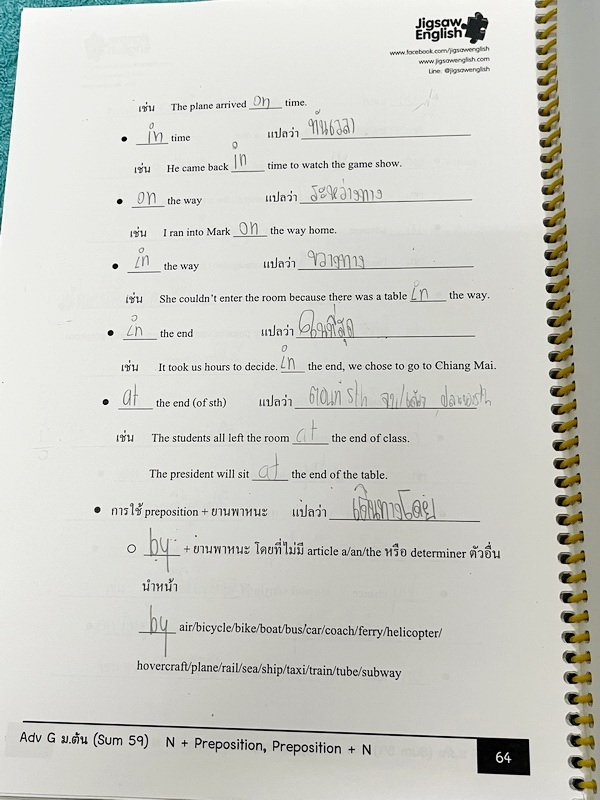 Jigsaw
English
www.facebook.com/jigsawenglish
www.jigsawenglish.com
Line: @jigsawenglish
เช่น The plane arrived on time.
• in time แปลว่า ทันเวลา
เช่น He came back in time to watch the game show.
• on the way แปลว่า ระหว่างทาง
เช่น I ran into Mark on the way home.
• in the way แปลว่า ขวางทาง
เช่น She couldn't enter the room because there was a table in the way.
• in the end แปลว่า ในที่สุด
เช่น It took us hours to decide. in the end, we chose to go to Chiang Mai.
• at the end (of sth) แปลว่า sth
เช่น The students all left the room at the end of class.
The president will sit at the end of the table.
• การใช้ preposition + ยานพาหนะ แปลว่า เดินทางโดย
○ by + ยานพาหนะ โดยที่ไม่มี article a/an/the หรือ determiner ตัวอื่น
นำหน้า
by air/bicycle/bike/boat/bus/car/coach/ferry/helicopter/
hovercraft/plane/rail/sea/ship/taxi/train/tube/subway
Adv G ม.ต้น (Sum 59) N + Preposition, Preposition + N
64